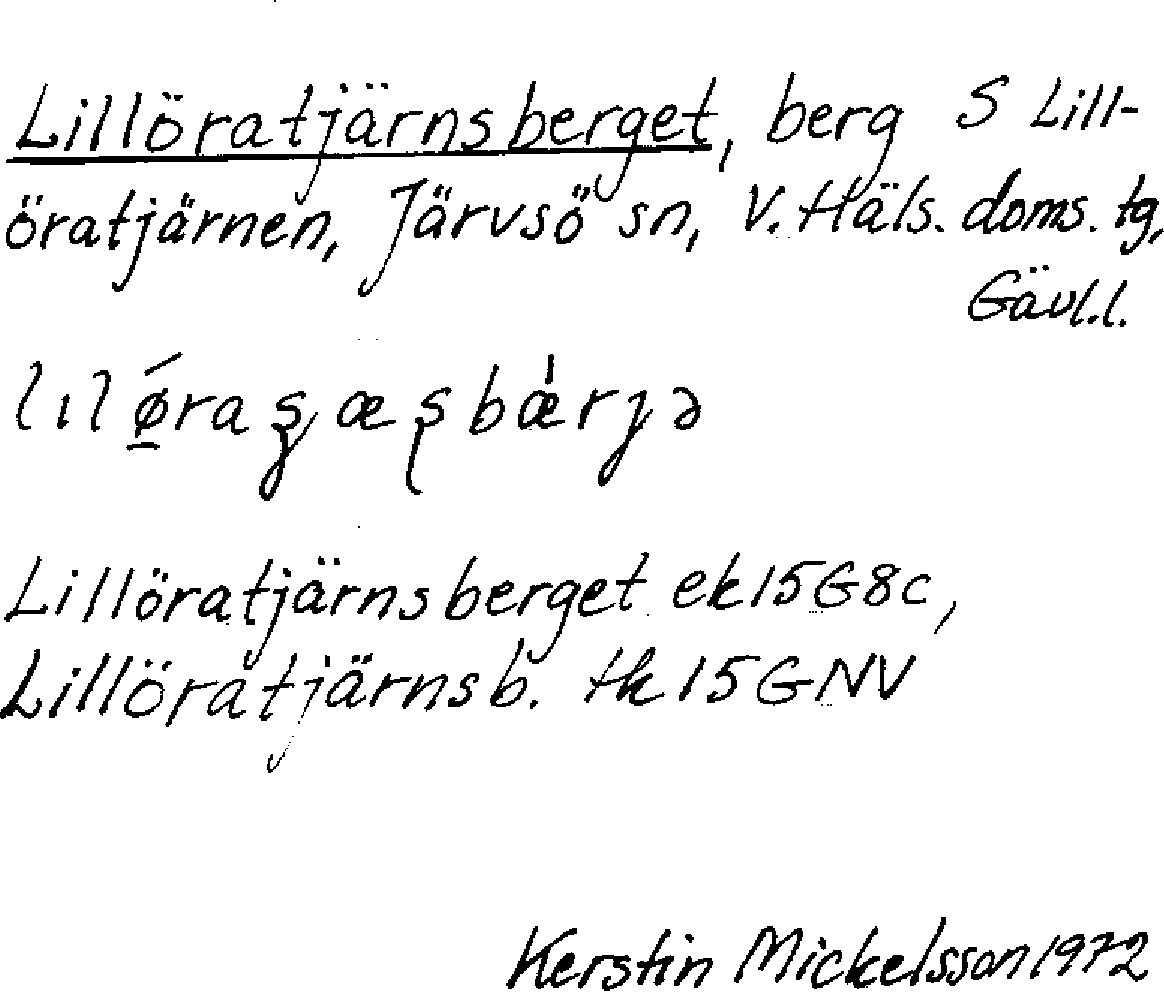 Lillöratjärnsberget, berg S Lill-
öratjärnen, Järvsö sn, V. Häls. doms. tg,
Gävl.l.
Lillöratjärnsberget ek15G8c,
Lillöratjärnsb. tk15GNV
Kerstin Mickelsson 1972